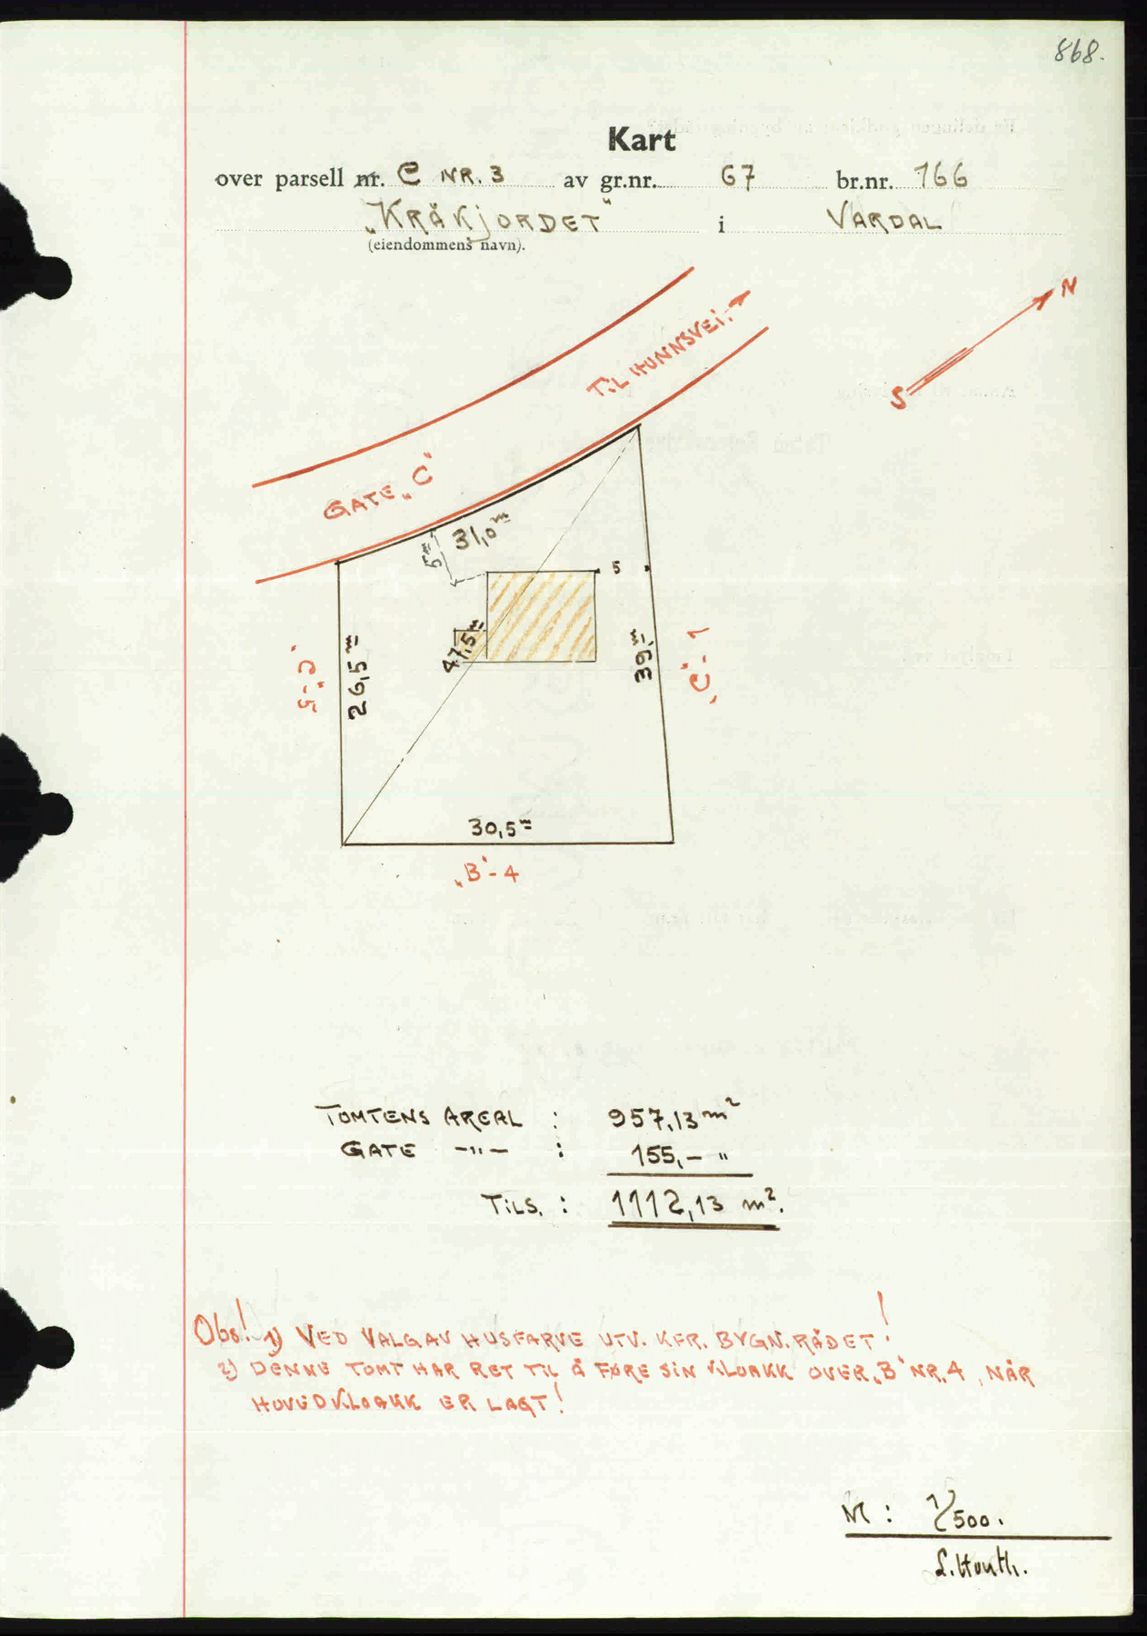 868.
Kart
over parsell nr. C NR. 3 av gr.nr. 67 br.nr. 166
„KRÅKJORDET" i VARDAL
(eiendommens navn).
N
TIL HUNNSVEI.
S
GATE „C"
31,0 m
5 m
5
47,5 m
26,5 m
39,- m
„C"-5
„C"-1
30,5 m
„B"-4
TOMTENS AREAL : 957,13 m²
GATE -"- : 155,- "
TILS. : 1112,13 m².
Obs! 1) VED VALG AV HUSFARVE UTV. KFR. BYGN.RÅDET!
2) DENNE TOMT HAR RET TIL Å FØRE SIN KLOAKK OVER „B" NR. 4, NÅR
HOVEDKLOAKK ER LAGT!
M : 1/500.